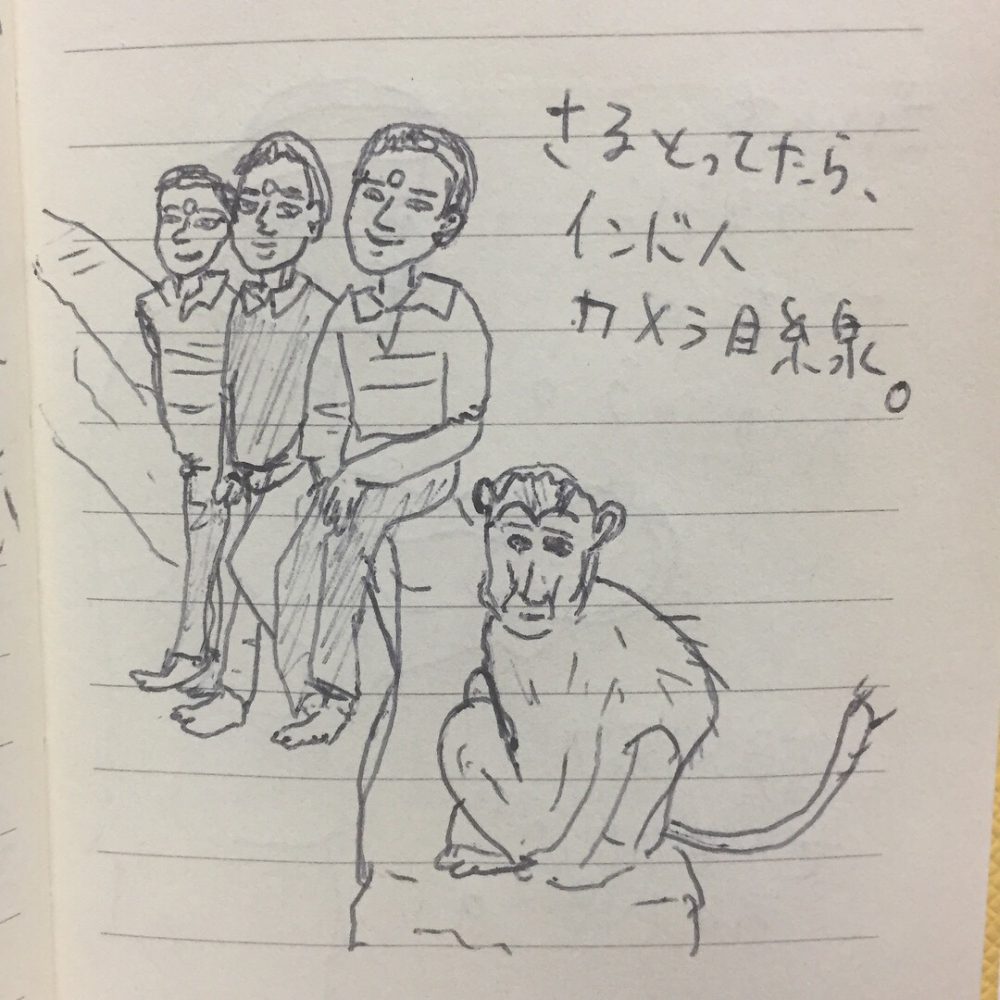 さるとってたら、
インド人
カメラ目線。